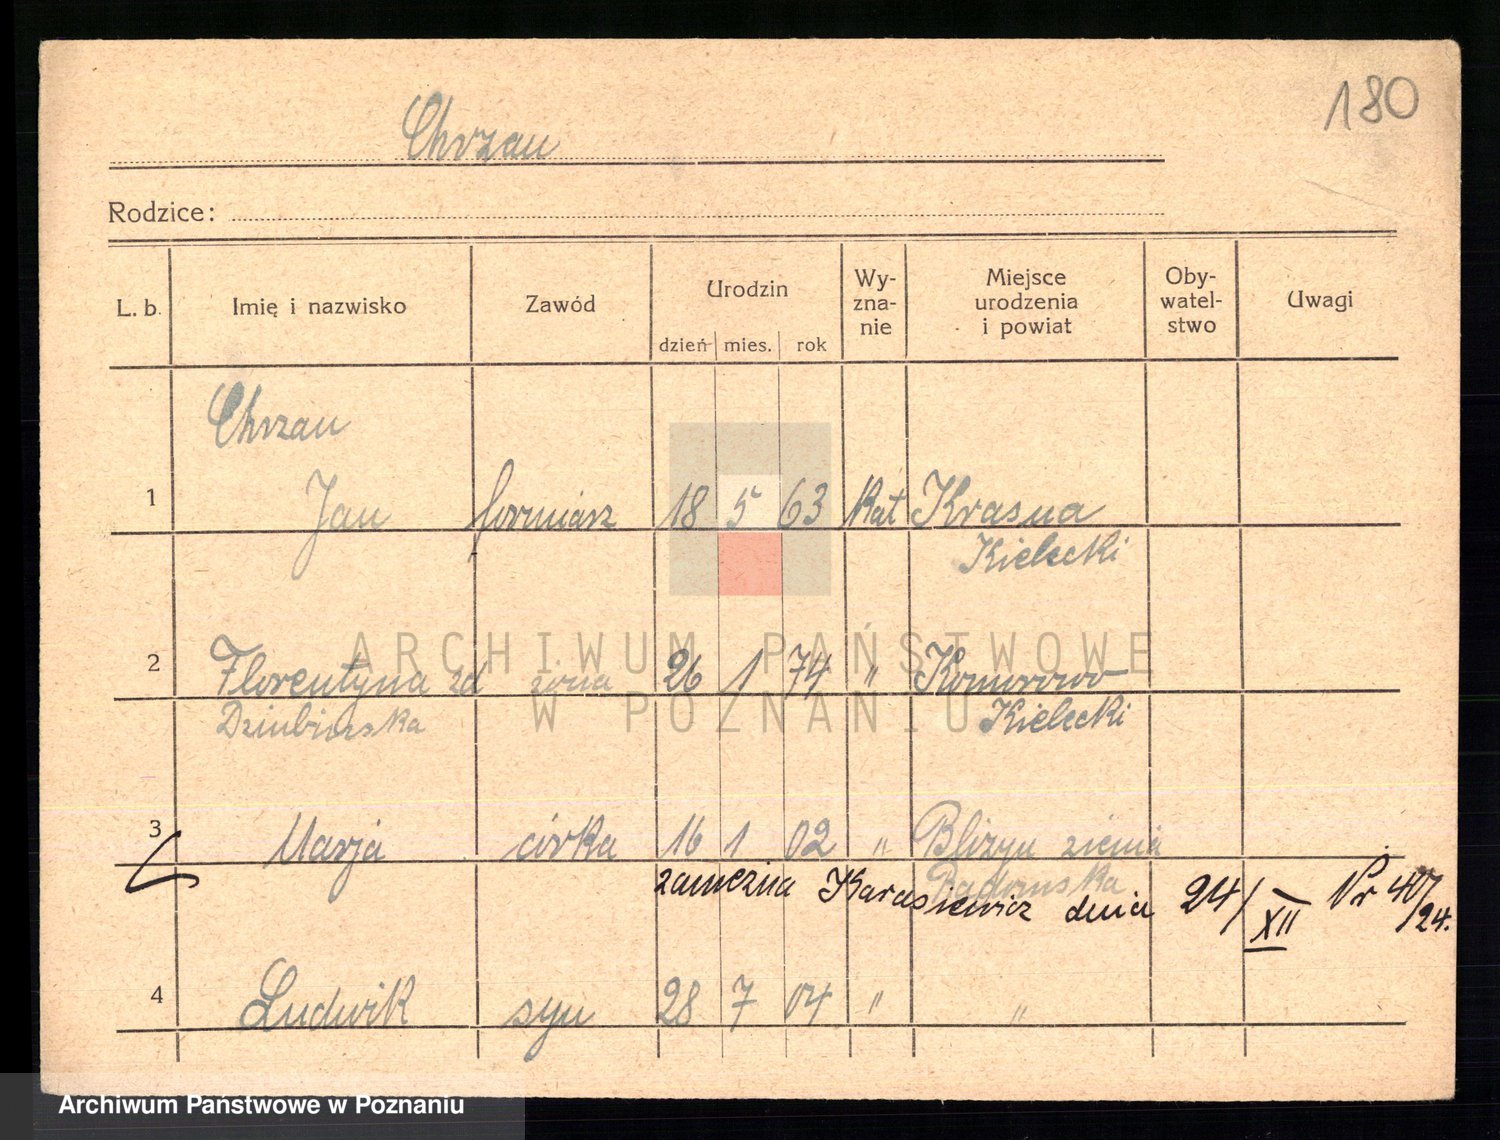 180
Chrzan
Rodzice:
L. b. Imię i nazwisko Zawód Urodzin Wy-zna-nie Miejsce urodzenia i powiat Oby-watel-stwo Uwagi
dzień mies. rok
Chrzan
1 Jan formiarz 18 5 63 Kat Krasna
Kielecki
ARCHIWUM PAŃSTWOWE
2 Florentyna zd żona 26 1 74 " Komorowo
W POZNANIU
Kielecki
3 Marja córka 16 1 02 " Bliżyn ziemia
Radomska
zamężna Karasiewicz dnia 24/XII Nr 407/24.
4 Ludwik syn 28 7 04 " "
Archiwum Państwowe w Poznaniu